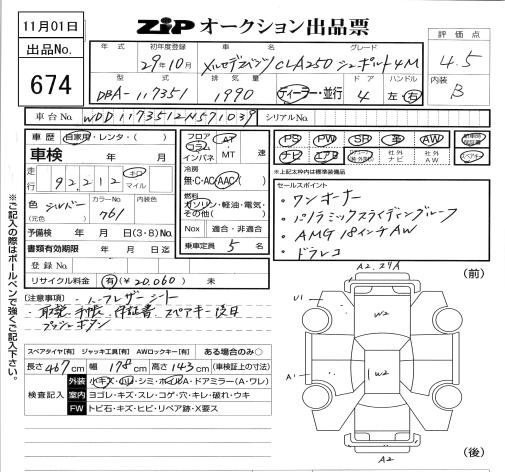 11月01日
ZiP オークション出品票
出品No.
674
年式
初年度登録
車名
グレード
29年10月
メルセデスベンツ CLA250 シュポルト4M
評価点
4.5
内装
B
型式
排気量
ドア
ハンドル
DBA-117351
1990
ディーラー・並行
4
左・右
車台No.
WDD1173512N571039
シリアルNo.
車歴
自家用・レンタ・( )
車検
年 月
走行
92,212
キロ
マイル
色
(元色)
シルバー
カラーNo.
761
内装色
予備検 年 月 日(3・8)No.
書類有効期限 年 月 日迄
登録No.
リサイクル料金 有(¥20.060) 未
フロア
コラム
インパネ
AT
MT
速
冷房
無・C・AC・AAC( )
燃料
ガソリン・軽油・電気・
その他( )
Nox 適合・非適合
乗車定員 5 名
PS
PW
SR
革
AW
ナビ
エアB
社外
ナビ
社外
AW
※上記太枠内は標準装備品
セールスポイント
・ワンオーナー
・パノラミックスライディングルーフ
・AMG18インチAW
・ドラレコ
注意事項
・ハーフレザーシート
・取説 手帳 保証書 スペアキー後日
プッシュボタン
スペアタイヤ[有] ジャッキ工具[有] AWロックキー[有] ある場合のみ○
長さ 467 cm 幅 178 cm 高さ 143 cm (車検証上の寸法)
検査記入
外装 小キズ・凹・シミ・ホイルA・ドアミラー(A・ワレ)
室内 ヨゴレ・キズ・スレ・コゲ・穴・キレ・破れ・ウキ
FW トビ石・キズ・ヒビ・リペア跡・X要ス
※ご記入の際はボールペンで強くご記入下さい。
(前)
U1
W2
A1
W2
A2
(後)